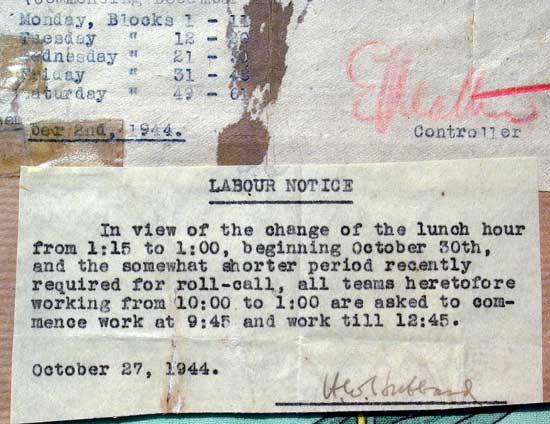 Monday, Blocks 1 - 11
Tuesday " 12 -
Wednesday " 21 -
Friday " 31 -
Saturday " 49 -
2nd, 1944.
Controller
LABOUR NOTICE
In view of the change of the lunch hour
from 1:15 to 1:00, beginning October 30th,
and the somewhat shorter period recently
required for roll-call, all teams heretofore
working from 10:00 to 1:00 are asked to com-
mence work at 9:45 and work till 12:45.
October 27, 1944.
H.W. Hubbard